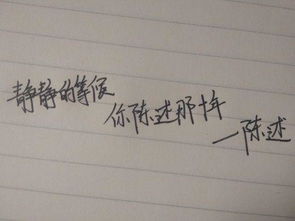 静静的等候
你陈述那十年
—陈述